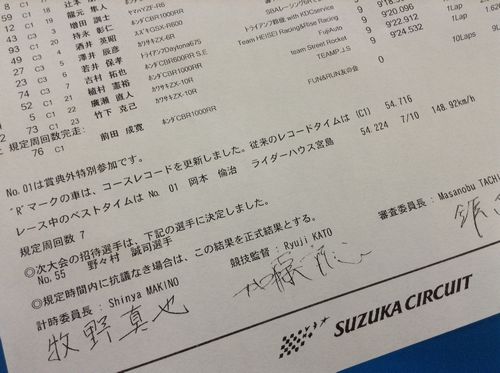 8 C3 龍元 隼人 ヤマハYZF-R6
12 C1 増田 調士 ホンダCBR1000RR
43 C3 持永 彰仁 スズキGSX-R600
93 C1 酒井 英昭 カワサキZX-6R
C3 澤井 辰彦 トライアンフDaytona675 トライアンフ動楽 with KDCservice
C3 若井 保孝 ホンダCBR600RR S.E Team HEISEI Racing&Rise Racing 9'20.096 1Lap
74 C3 吉村 拓也 カワサキZX-6R FujiAuto 9'22.912 1Lap
5 C1 植村 憲裕 カワサキZX-10R team Street Rocket 9'24.532
52 C1 廣瀬 直人 カワサキZX-10R TEAMP.J.S 10Laps
73 C1 竹下 克己 ホンダCBR1000RR FUN&RUN友の会
規定周回数完走:
76 C1 前田 成寛 ホンダCBR1000RR 0
No.01は賞典外特別参加です。
"R"マークの車は、コースレコードを更新しました。従来のレコードタイムは (C1) 54.716
レース中のベストタイムは No. 01 岡本 倫治 ライダーハウス宮島 54.224 7/10 148.92km/h
規定周回数 7
◎次大会の招待選手は、下記の選手に決定しました。
No.55 野々村 誠司選手
◎規定時間内に抗議なき場合は、この結果を正式結果とする。
計時委員長 : Shinya MAKINO 競技監督 : Ryuji KATO 審査委員長 : Masanobu TACHI
牧野真也
SUZUKA CIRCUIT